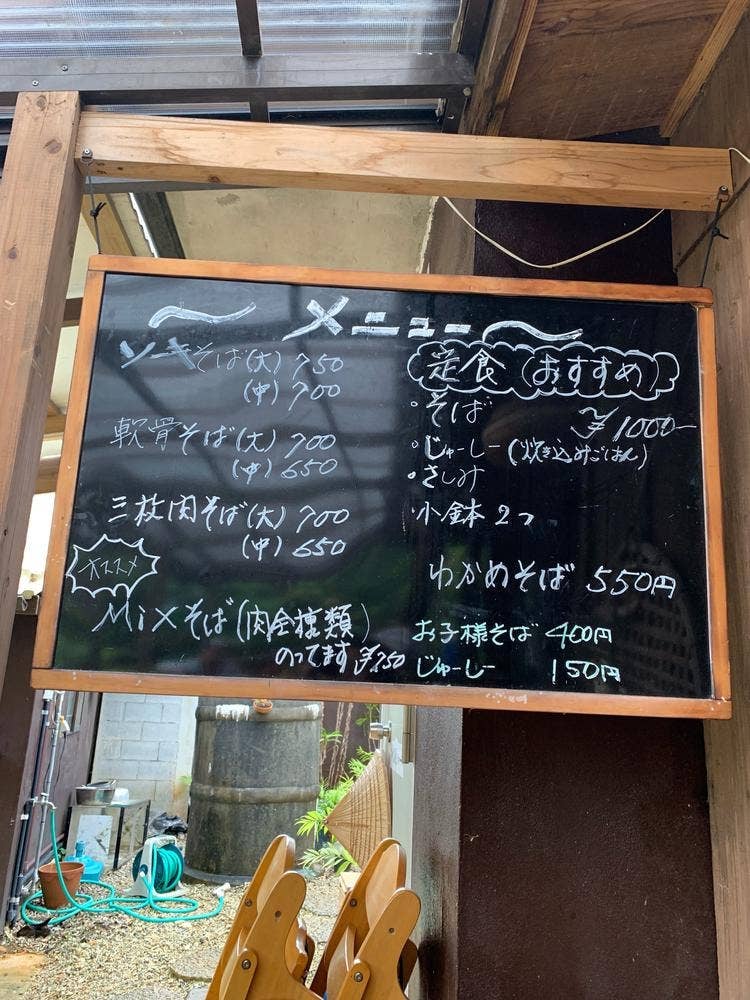 〜 メニュー 〜
ソーキそば(大) 750
(中) 700
軟骨そば(大) 700
(中) 650
三枚肉そば(大) 700
(中) 650
オススメ
Mixそば(肉全種類)
のってます ¥750
定食 (おすすめ)
・そば
¥1000-
・じゅーしー(炊き込みごはん)
・さしみ
・小鉢 2つ
わかめそば 550円
お子様そば 400円
じゅーしー 150円